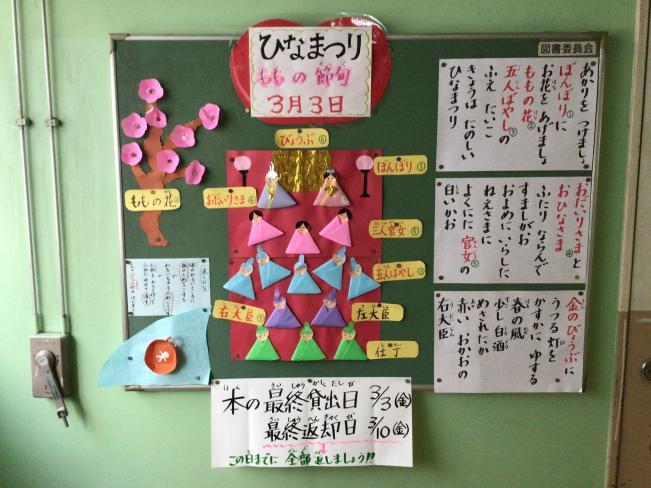 ひなまつり
ももの節句
3月3日
図書委員会
あかりを つけましょ
ぼんぼりに①
お花を あげましょ
ももの花②
五人ばやしの③
ふえ たいこ
きょうは たのしい
ひなまつり
おだいりさまと
おひなさま④
ふたり ならんで
すましがお
およめに いらした
ねえさまに
よくにた 官女の⑤
白いかお
金のびょうぶに
うつる灯を
かすかに ゆする
春の風
少し白酒
めされたか
赤い おかおの
右大臣
びょうぶ⑥
ぼんぼり①
ももの花②
おだいりさま④
三人官女⑤
五人ばやし③
右大臣⑦
左大臣
仕丁
本の最終貸出日 3/3(金)
最終返却日 3/10(金)
この日までに 全部返しましょう!!